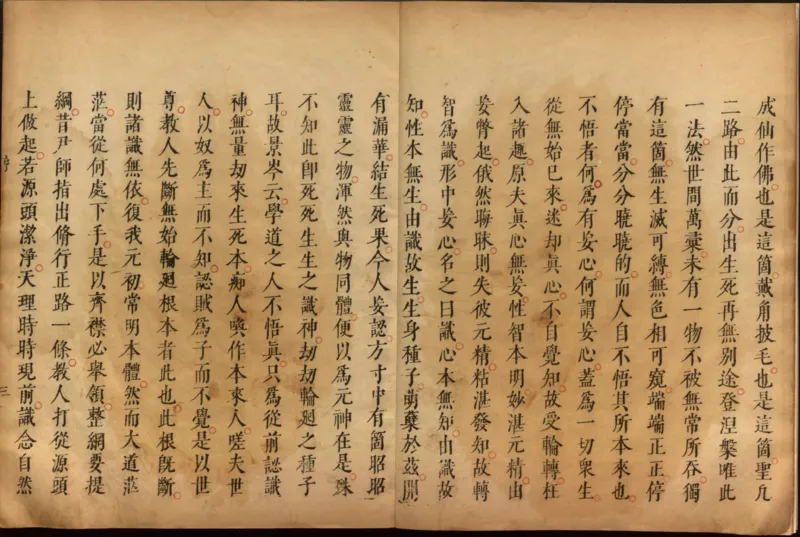 成仙作佛也是這箇戴角披毛也是這箇聖凡
二路由此而分出生死再無別途登涅槃唯此
一法然世間萬彙未有一物不被無常所吞獨
有這箇無生滅可縛無色相可窺端端正正停
停當當分分曉曉的而人自不悟其所本來也
不悟者何為有妄心何謂妄心蓋為一切衆生
從無始已來迷却眞心不自覺知故受輪轉枉
入諸趣原夫眞心無妄性智本明妙湛元精由
妄瞥起俄然晦昧則失彼元精粘湛發知故轉
智為識形中妄心名之曰識心本無知由識故
知性本無生由識故生生身種子萌蘖於茲開
有漏華結生死果今人妄認方寸中有箇昭昭
靈靈之物渾然與物同體便以為元神在是殊
不知此即死死生生之識神劫劫輪廻之種子
耳故景岑云學道之人不悟眞只為從前認識
神無量劫來生死本痴人喚作本來人嗟夫世
人以奴為主而不知認賊為子而不覺是以世
尊教人先斷無始輪廻根本者此也此根旣斷
則諸識無依復我元初常明本體然而大道茫
茫當從何處下手是以齊襟必舉領整網要提
綱昔尹師指出脩行正路一條教人打從源頭
上做起若源頭潔淨天理時時現前識念自然
序
三